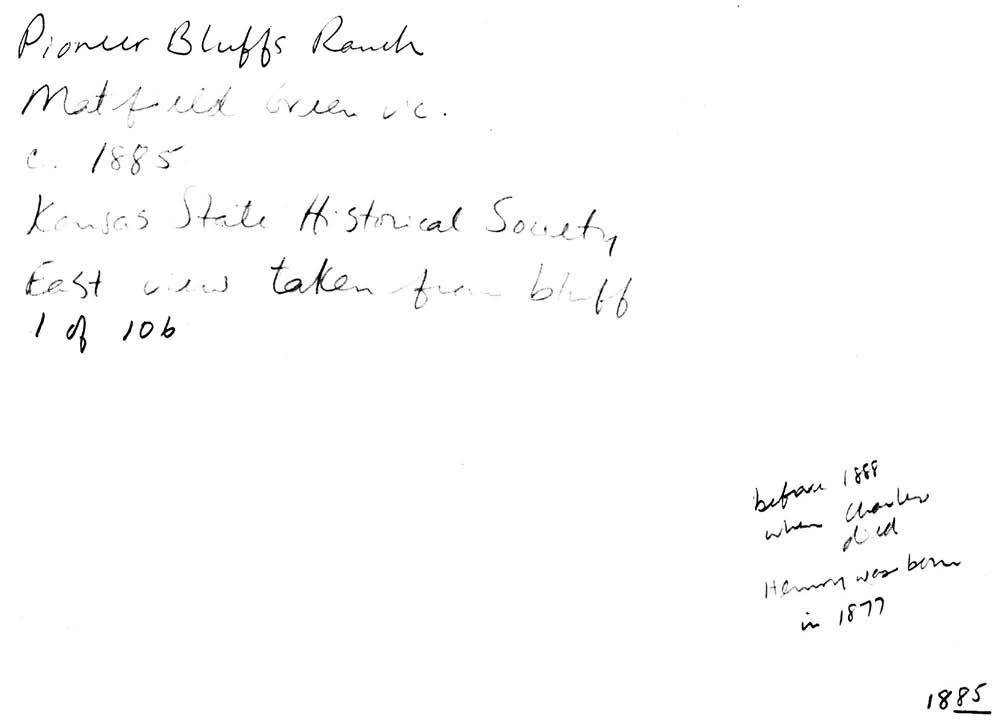 Pioneer Bluffs Ranch
Matfield Green vic.
c. 1885
Kansas State Historical Society
East view taken from bluff
1 of 106
before 1888
when Charles
died
Henry was born
in 1877
1885